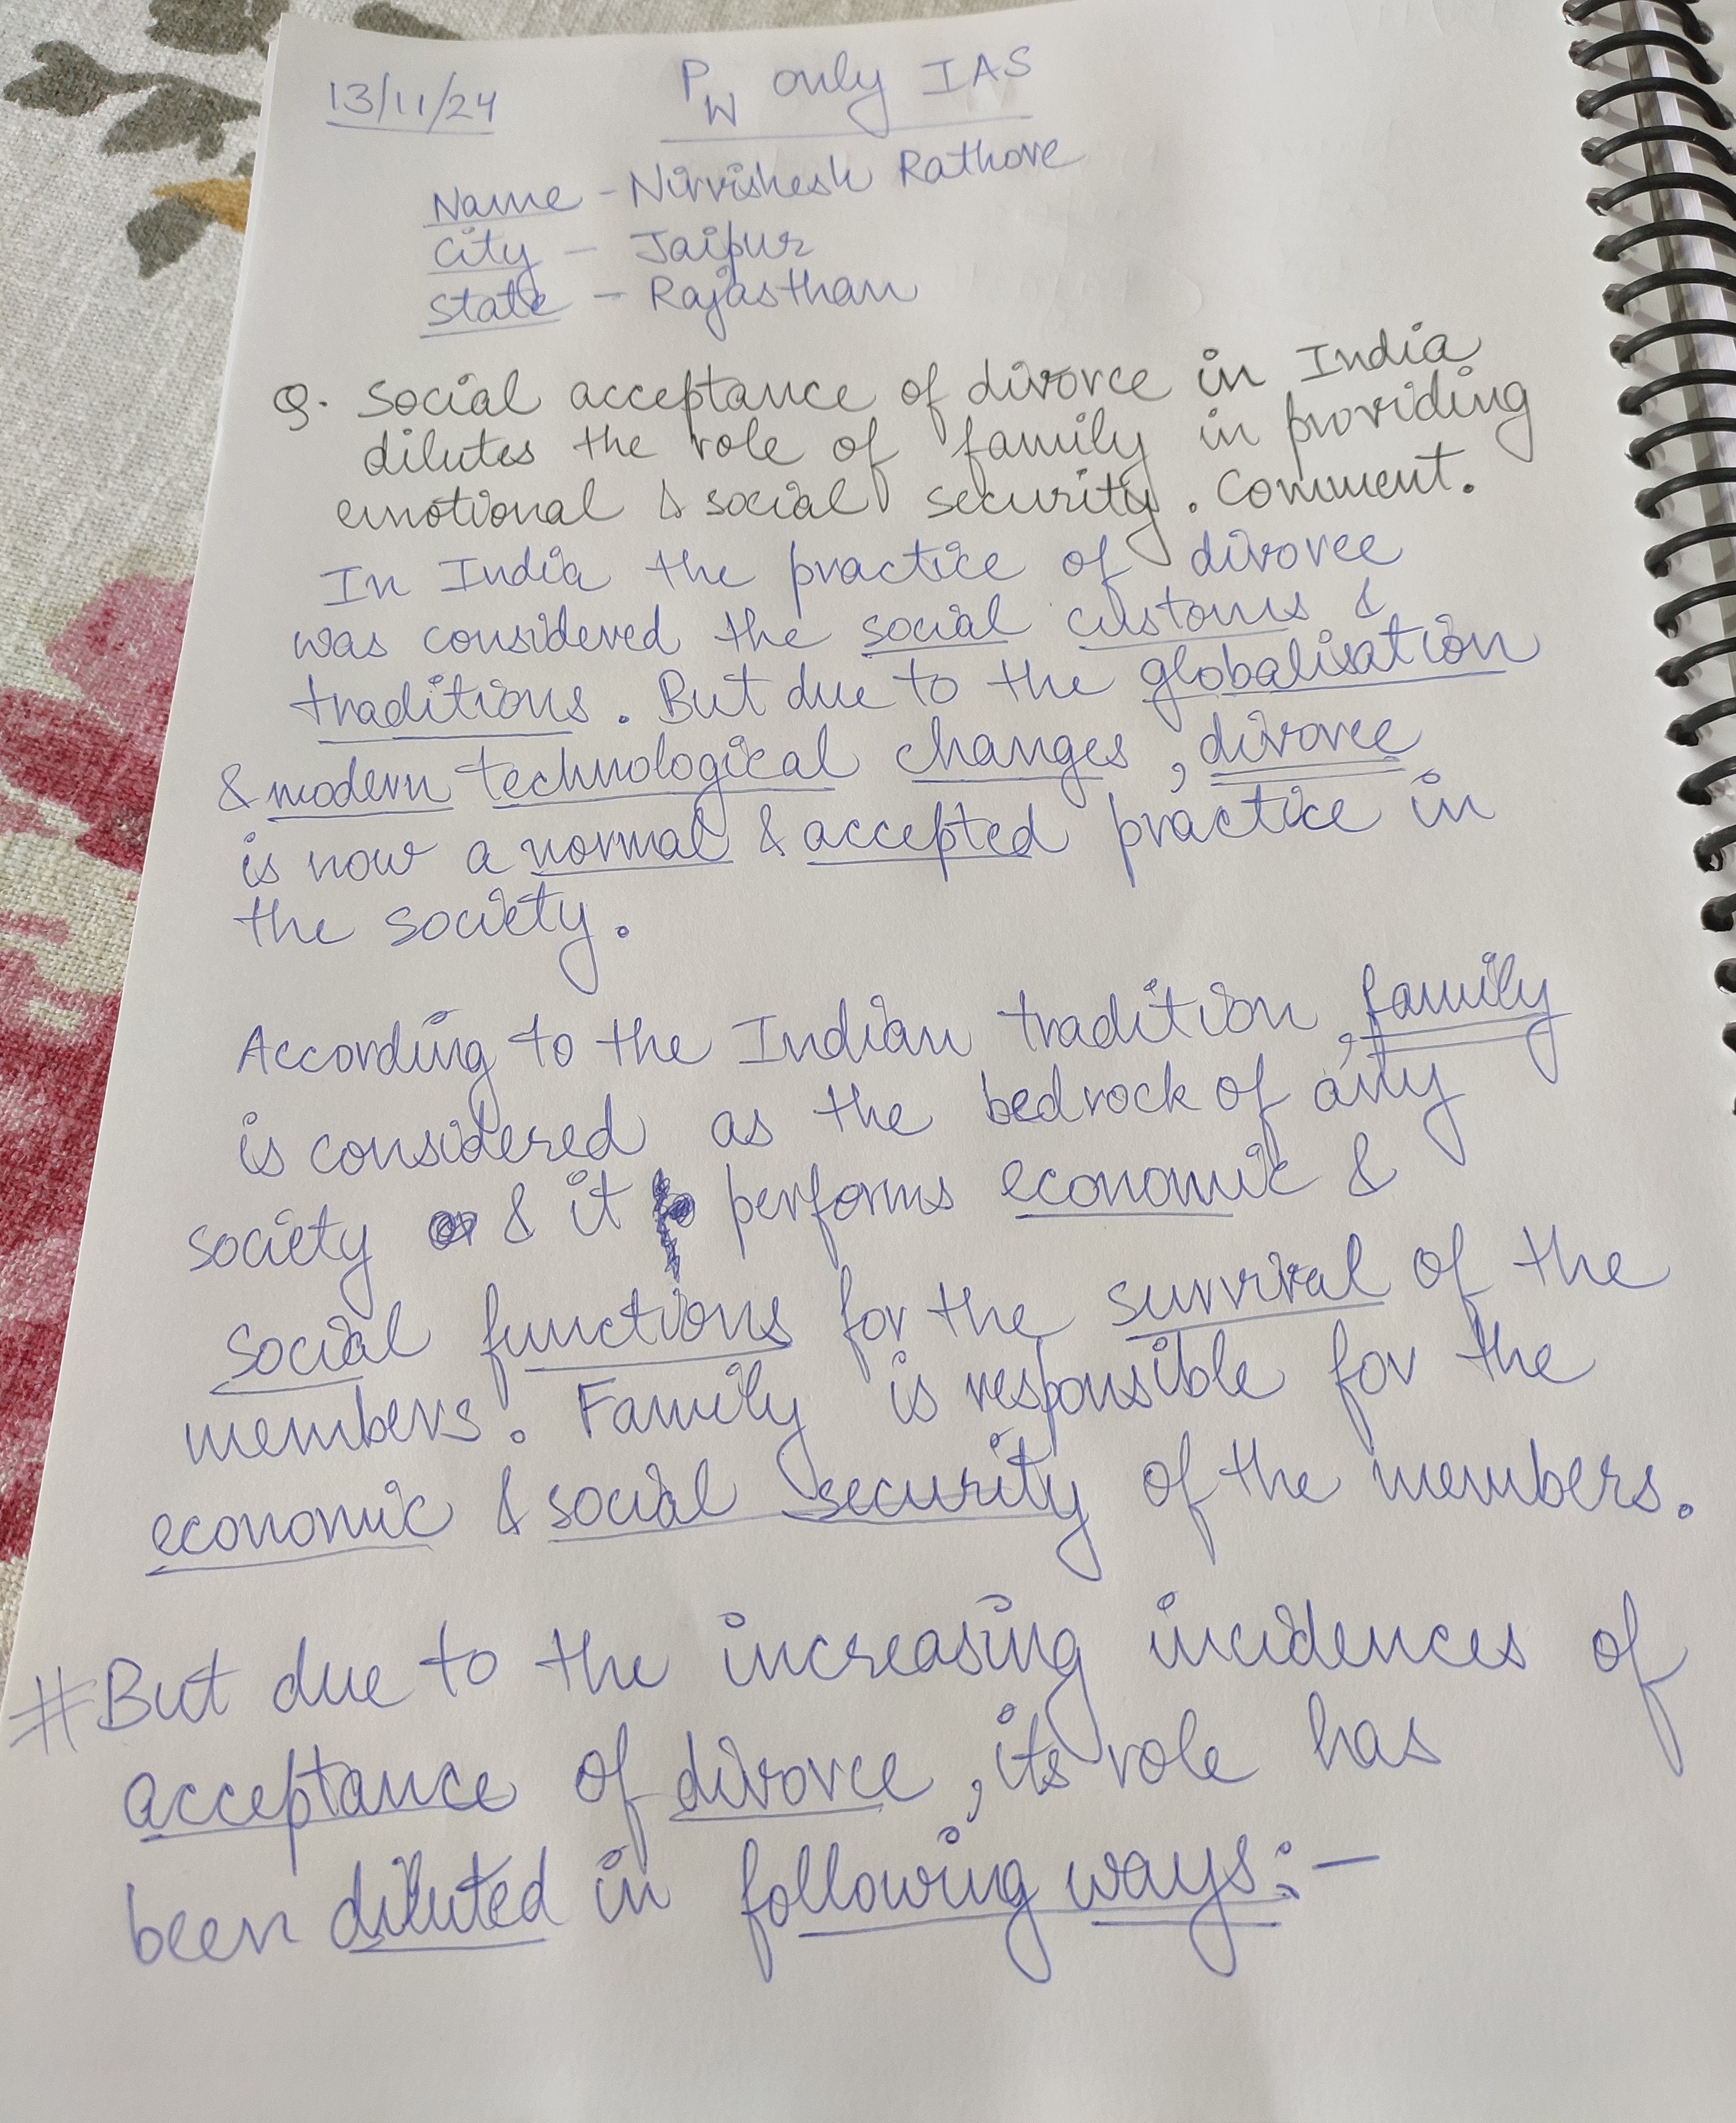 13/11/24 PW only IAS
Name - Nirvishesh Rathore
City - Jaipur
State - Rajasthan
Q. Social acceptance of divorce in India
dilutes the role of family in providing
emotional & social security. Comment.
In India the practice of divorce
was considered the social customs &
traditions. But due to the globalisation
& modern technological changes, divorce
is now a normal & accepted practice in
the society.
According to the Indian tradition, family
is considered as the bedrock of any
society & it performs economic &
social functions for the survival of the
members. Family is responsible for the
economic & social security of the members.
# But due to the increasing incidences of
acceptance of divorce, its role has
been diluted in following ways:-